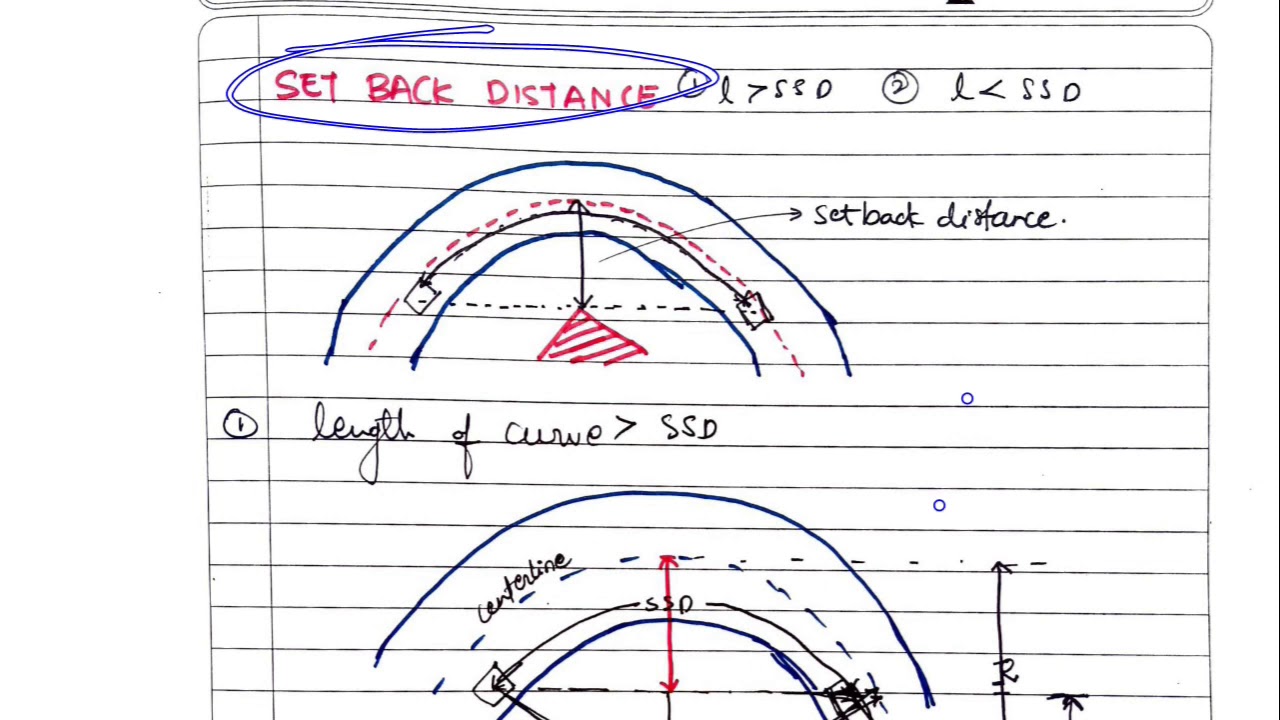 SET BACK DISTANCE ① l > SSD ② l < SSD
Setback distance.
① length of curve > SSD
centerline
SSD
R